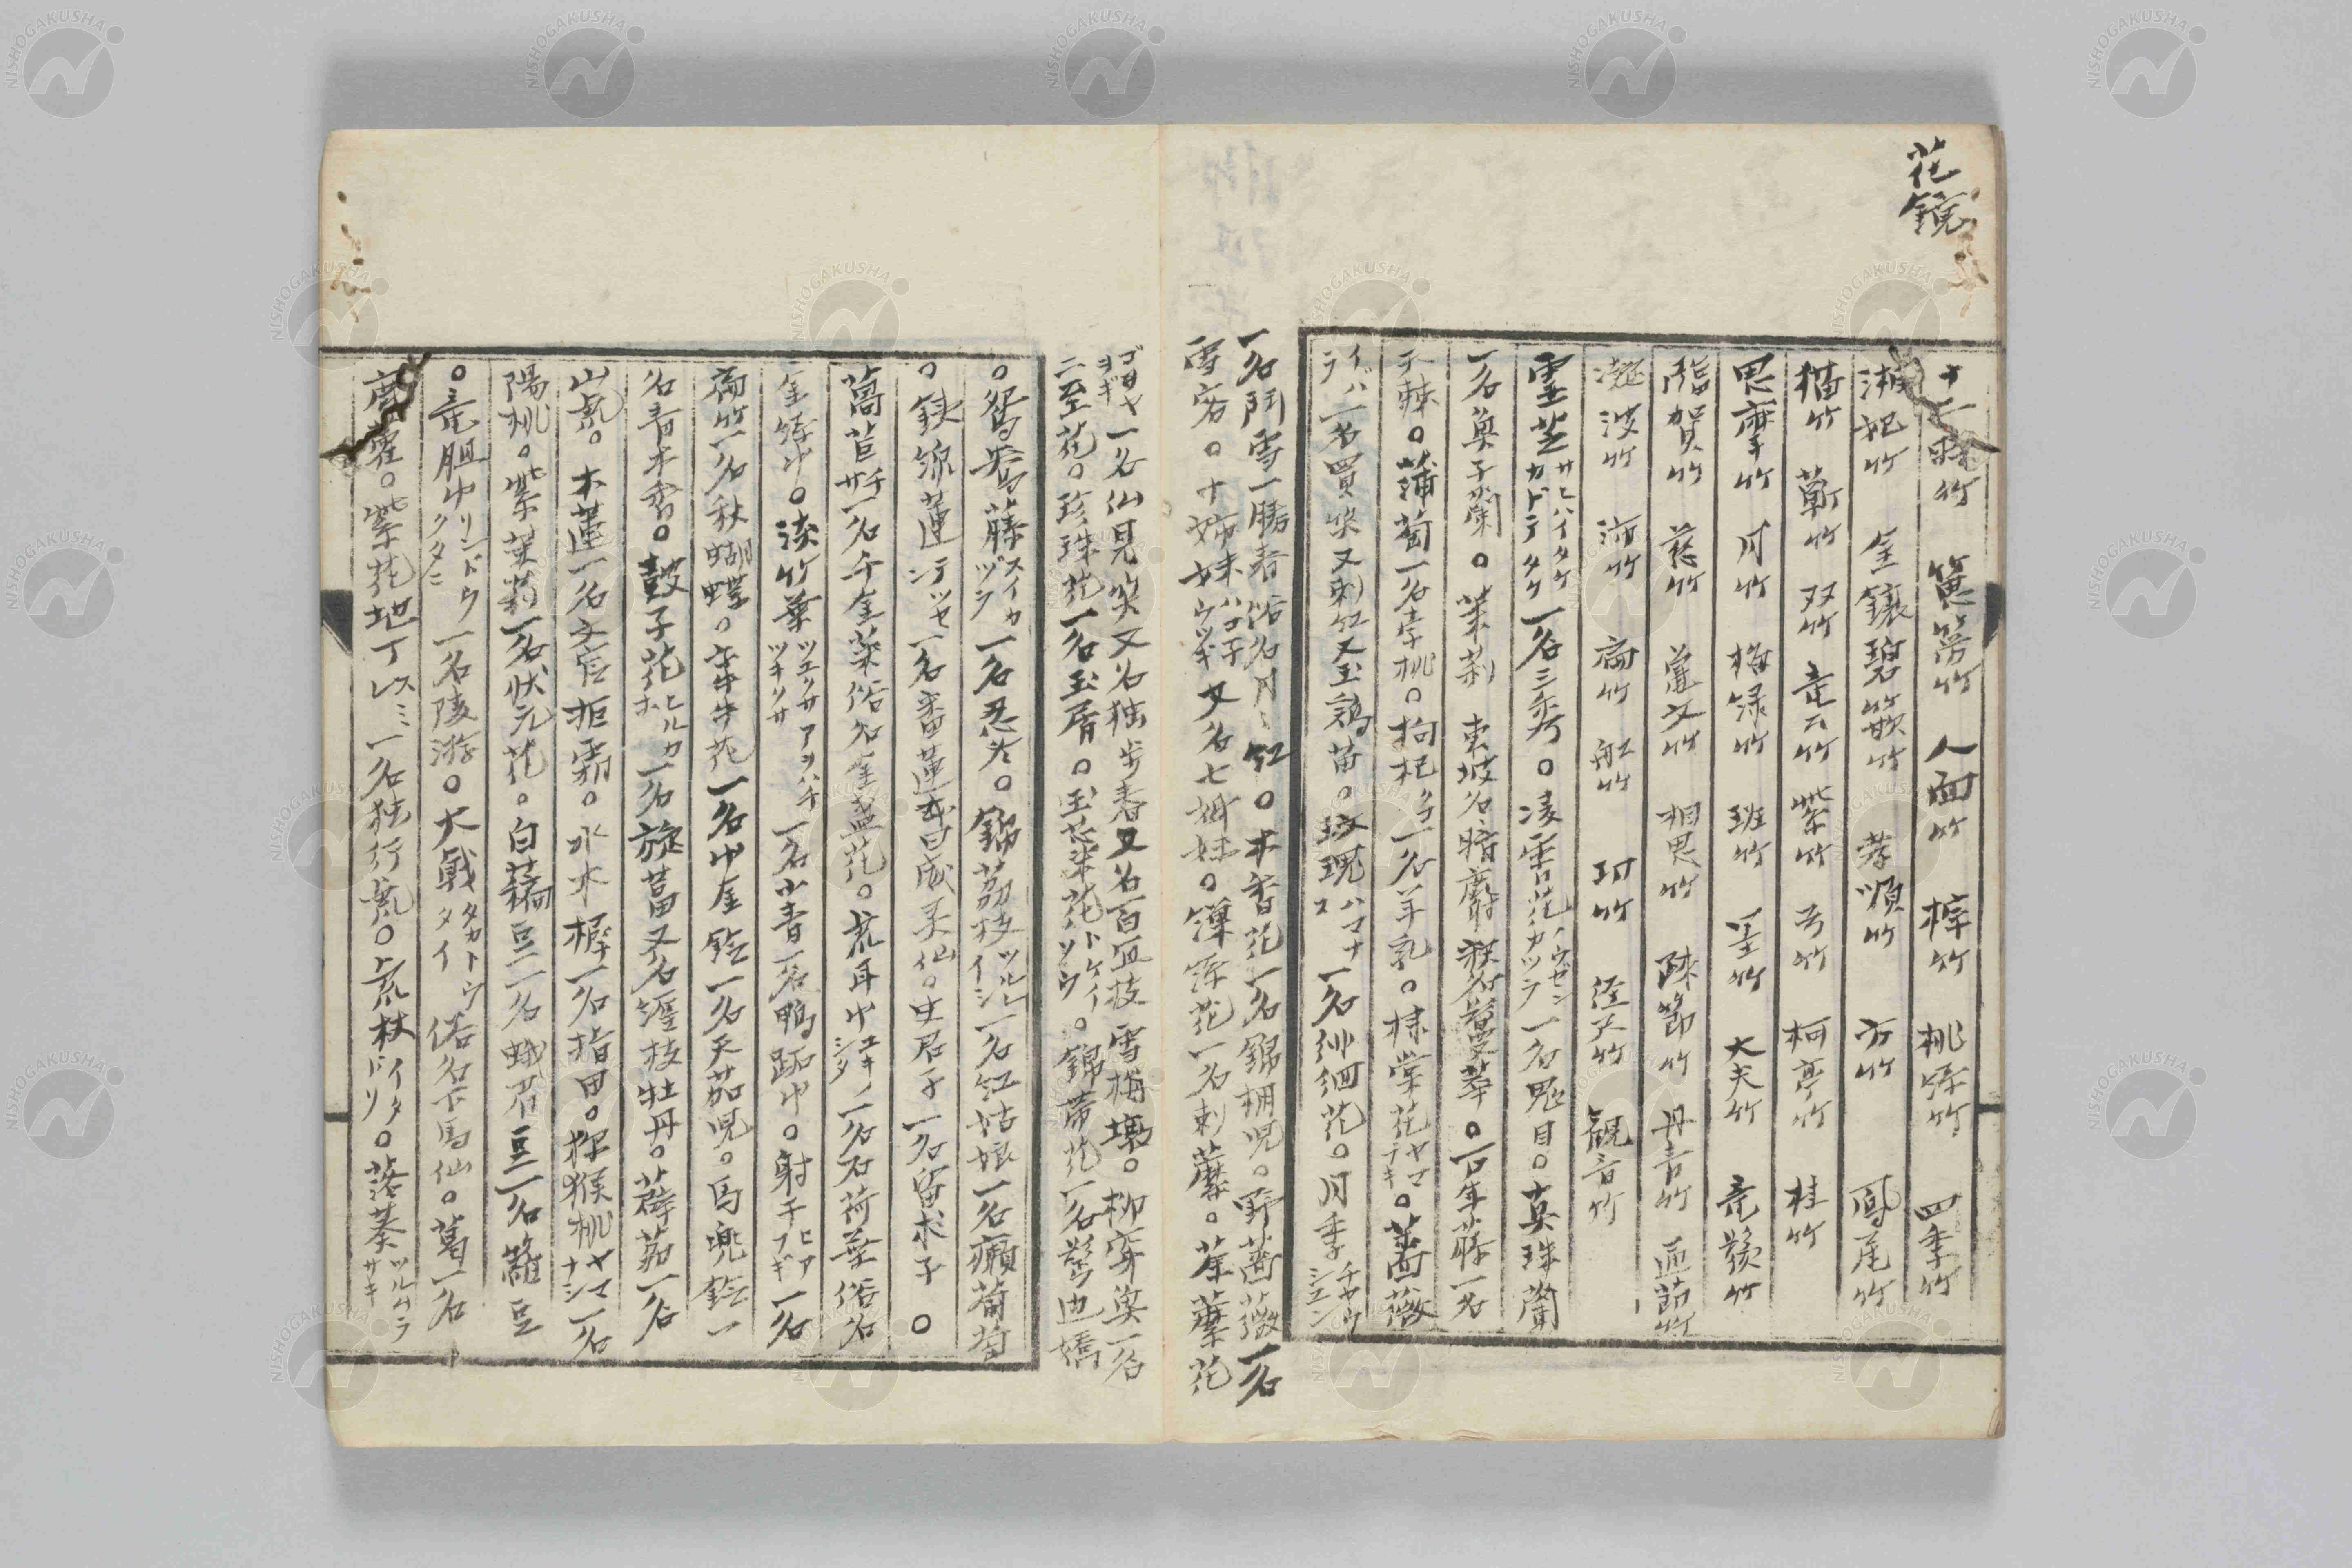 花鏡
十二時竹 篃簩竹 人面竹 椶竹 桃絲竹 四季竹
湘妃竹 金鑲碧嵌竹 孝順竹 方竹 鳳尾竹
猫竹 蘄竹 双竹 竜公竹 紫竹 弓竹 柯亭竹 桂竹
思摩竹 月竹 梅緑竹 班竹 墨竹 大夫竹 竜鬚竹
㿜賀竹 慈竹 篃文竹 相思竹 疎節竹 丹青竹 區節竹
澁浪竹 浯竹 扁竹 舡竹 邛竹 径尺竹 観音竹
霊芝サヒハイタケカドデタケ一名三秀。凌霄花ノウゼンカツラ一名鬼目。真珠蘭
一名奠子蘭。茉莉 東坡名暗麝 釈名鬘華。百年藤一名
千棘。蒲萄一名李桃。枸杞クヲ一名羊乳。棣棠花ヤマブキ。薔薇
イバラ一名買笑又刺红又玉鶏苗。玫瑰ハマナス一名徘徊花。月季チヤウシユン
一名鬥雪一勝春俗名月〻红。木香花一名錦棚児。野薔薇一名
雪客。十姉妹ハコ子ウツギ又名七姉妹。繅絲花一名刺蘼。荼蘼花
ゴヨウヲギ一名仙見笑又名独歩春又名百宜枝雪梅墩。柳穿魚一名
二至花。珍珠花一名玉屑。玉蕊花トケイソウ。錦帯花一名鬂邊嬌
。鴛鴦藤スイカヅラ一名忍冬。錦荔枝ツルレイシ一名红姑娘一名癩葡萄
。鉄線蓮テツセン一名番蓮或曰威灵仙。史君子一名留求子。
萵苣チサ一名千金菜俗名金盞花。虎耳中ユキノシタ一名石荷葉俗名
金絲中。淡竹葉ツユクサアヲハナツキクサ一名小青一名鴨跖中。射干ヒアフギ一名
扁竹一名秋蝴蝶。牽牛花一名中金鈴一名天茄児。馬兜鈴一
名青木香。鼓子花ヒルカホ一名旋葍又名纏枝牡丹。薜茘一名
山鬼。木蓮一名文官拒霜。水木樨一名指田。猕猴桃ヤマナシ一名
陽桃。紫茉莉一名状元花。白藊豆一名蛾眉豆一名籬豆
。竜胆中リンドウクタニ一名陵游。大戟タカトウタイ俗名下馬仙。葛一名
鹿藿。紫花地丁スミレ一名独行虎。虎杖イタドリ。落葵ツルムラサキ